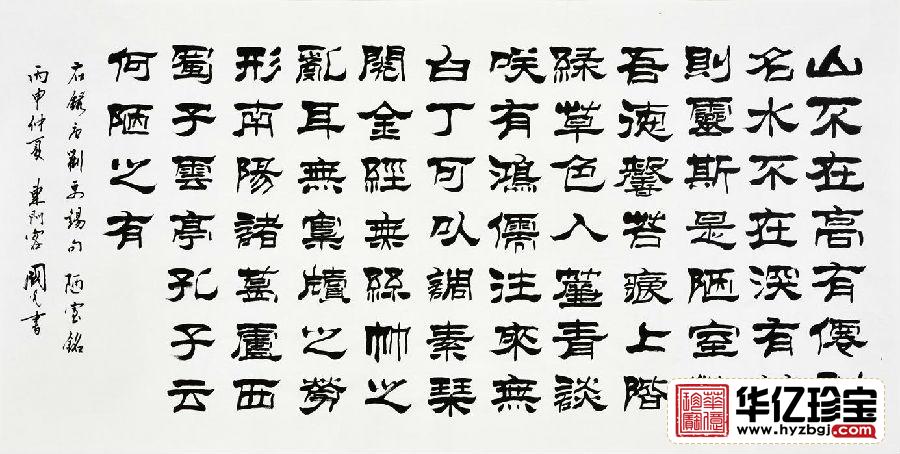 山不在高有僊
名水不在深有
則靈斯是陋室
吾德馨苔痕上階
綠草色入簾青談
咲有鴻儒往來無
白丁可以調素琴
閱金經無絲竹之
亂耳無案牘之勞
形南陽諸葛廬西
蜀子雲亭孔子云
何陋之有
右錄唐劉禹錫句 陋室銘
丙申仲夏 東 客 國 書
华亿珍宝
www.hyzbgj.com